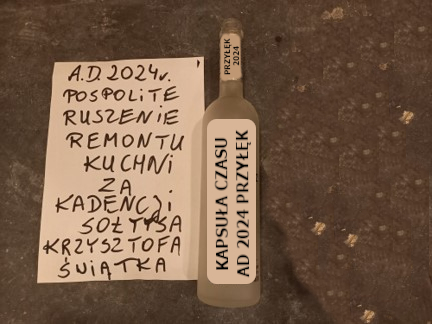 A.D. 2024r.
POSPOLITE
RUSZENIE
REMONTU
KUCHNI
ZA
KADENCJI
SOŁTYSA
KRZYSZTOFA
ŚWIĄTKA
PRZYŁĘK
2024
KAPSUŁA CZASU
AD 2024 PRZYŁĘK